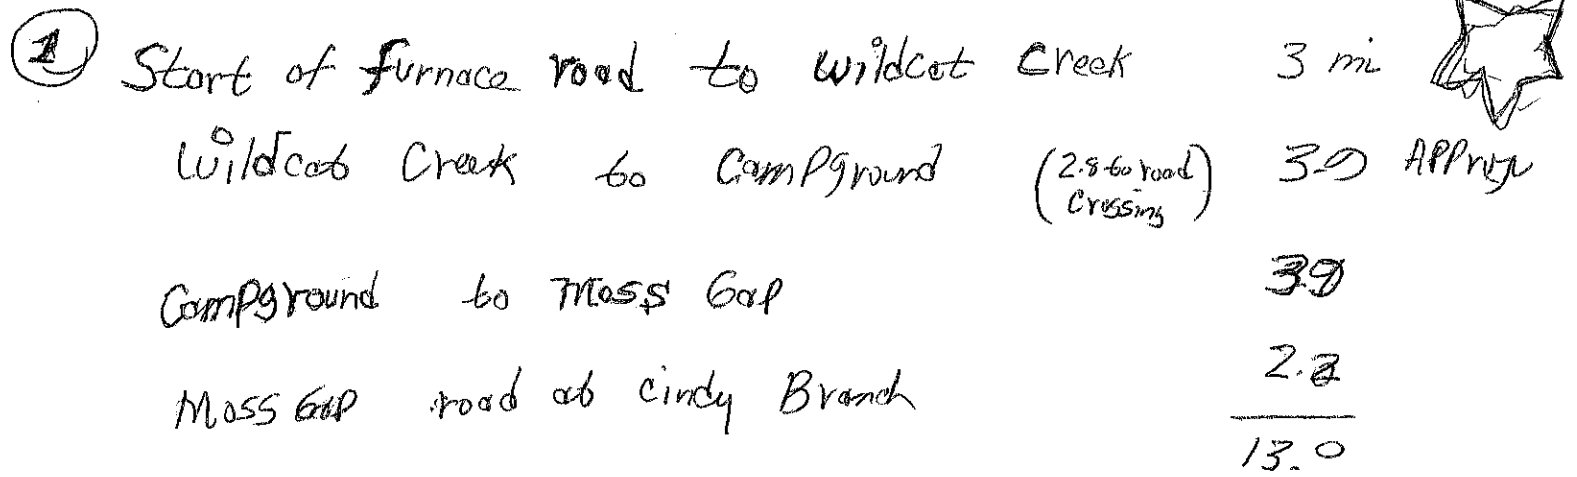 1 Start of furnace road to wildcat Creek 3 mi
Wildcat Creek to CamPground (2.8 to road 3.9 APProx
Crossing)
CamPground to Moss Gap
Moss Gap road at Cindy Branch
13.0